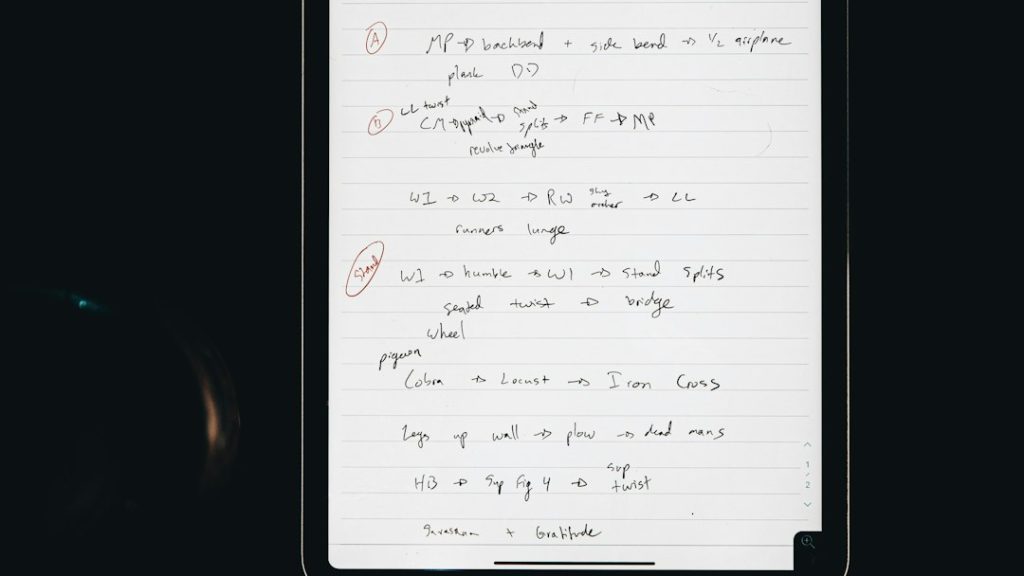 A MP → backbend + side bend → 1/2 airplane
plank DD
LL twist
B CM → pyramid → stand splits → FF → MP
revolve triangle
W1 → W2 → RW → LL
runners lunge
Stand W1 → humble → W1 → stand splits
seated twist → bridge
wheel
pigeon
Cobra → Locust → Iron Cross
Legs up wall → plow → dead mans
HB → Sup Fig 4 → sup twist
+ Gratitude
1/2